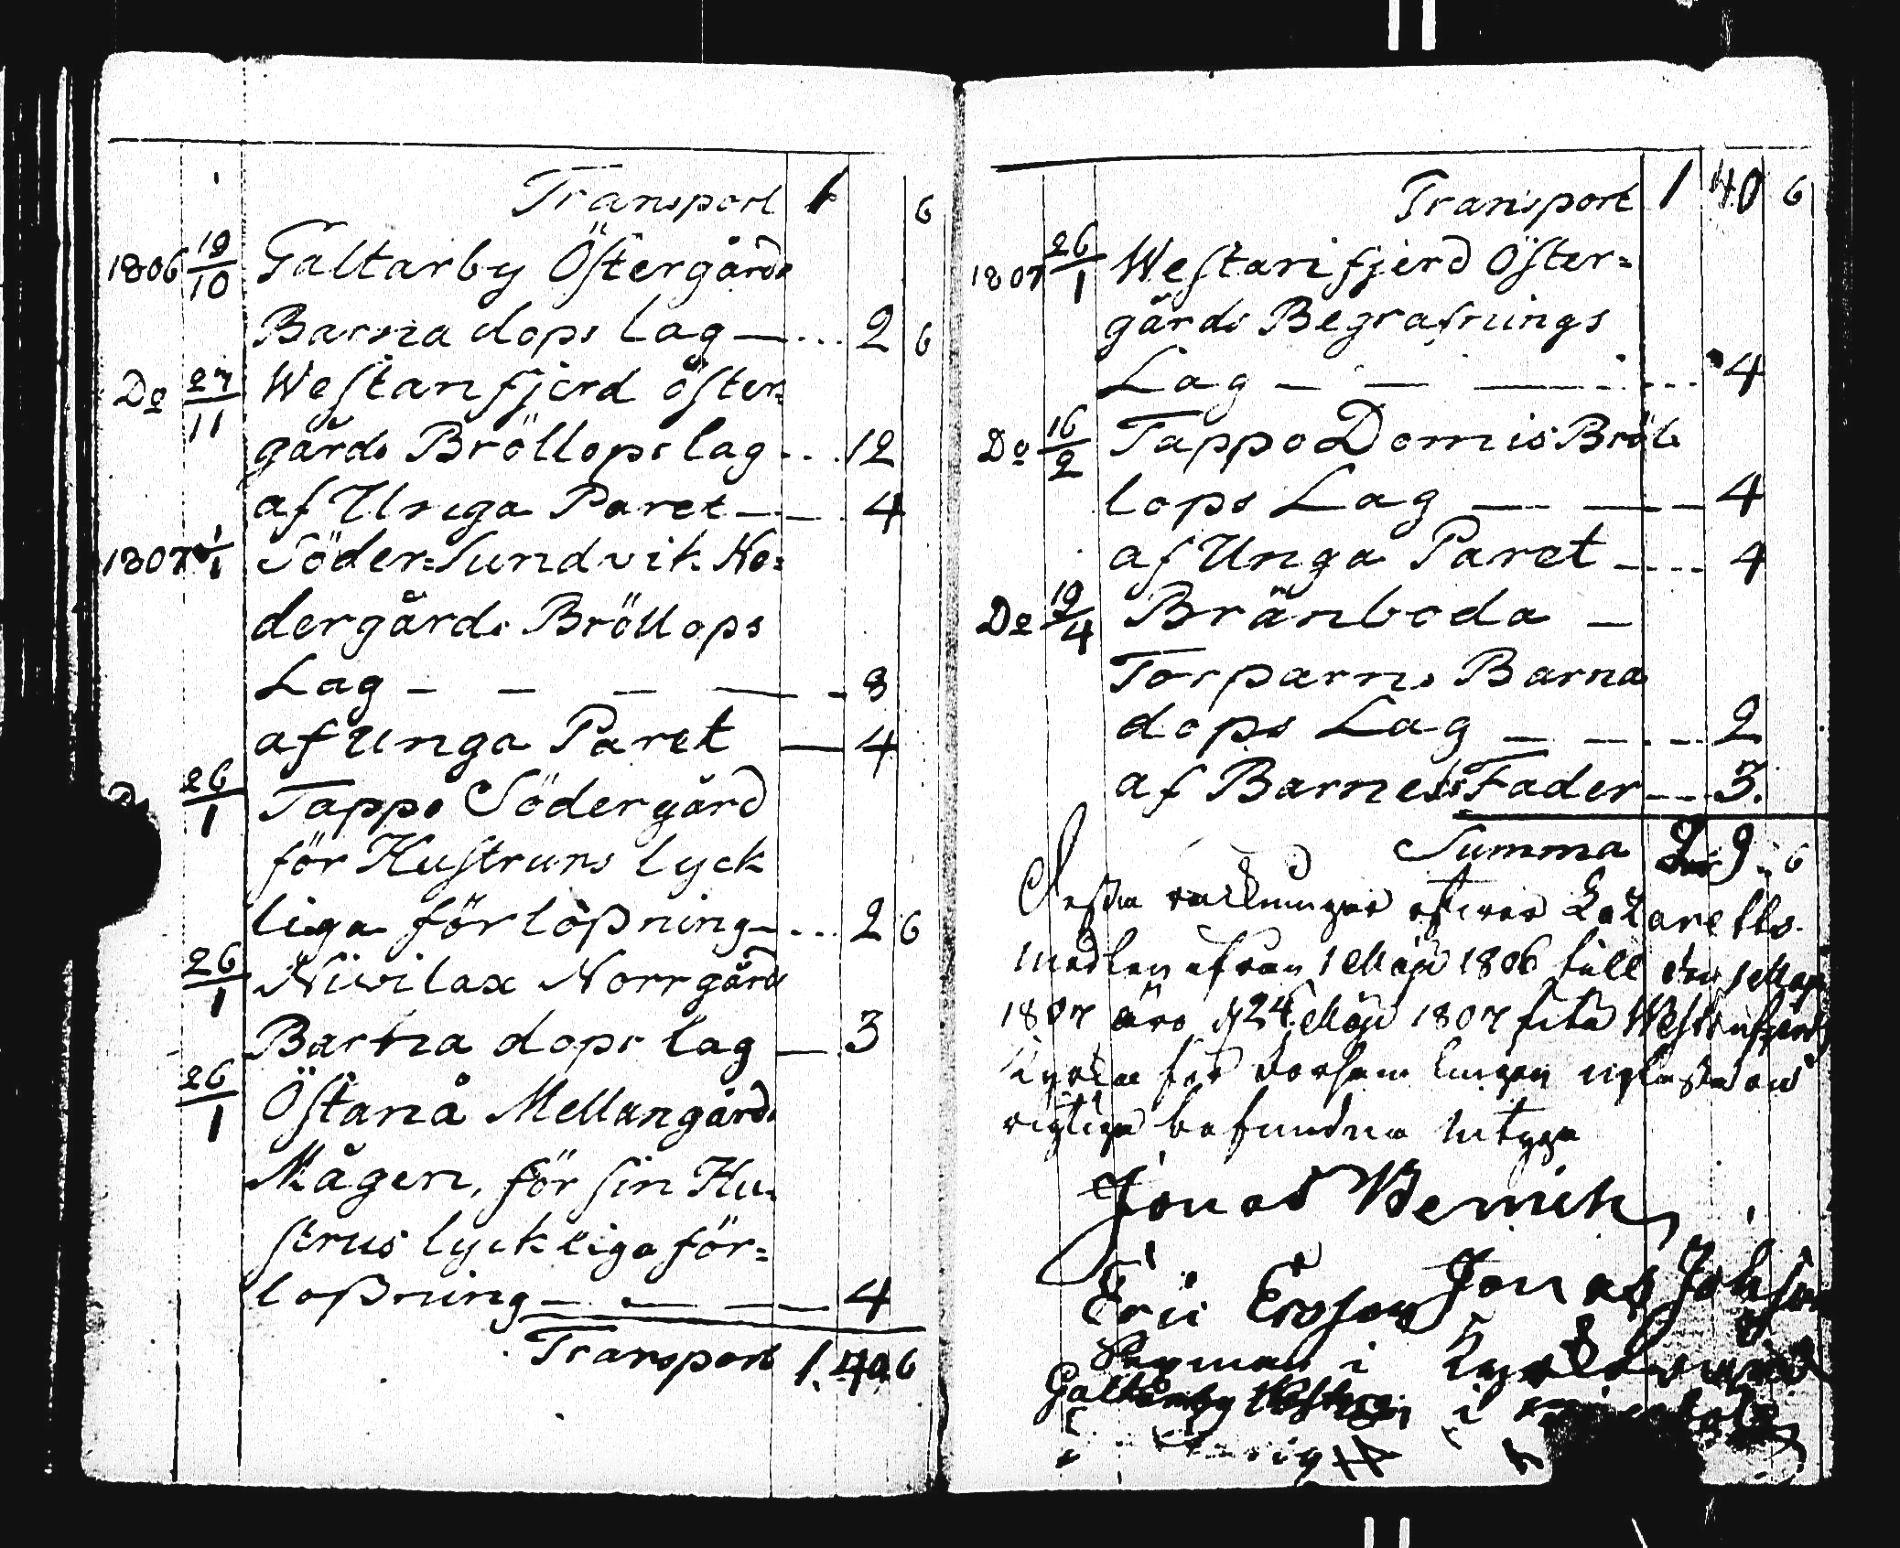 Transport 1 6
1806 19/10 Galtarby Östergårds
Barna dops lag — ... 2 6
Do 27/11 Westanfjerd öster=
gårds Bröllops lag ... 12
af Unga Paret — — . 4
1807 1/1 Söder=Sundvik Ne=
dergårds Bröllops
Lag — — — — - 8
af unga Paret — 4
26/1 Tappo Södergård
för Hustruns lyck
liga förloßning — ... 2 6
26/1 Niwilax Norrgårds
Barna dops lag — 3
26/1 Östanå Mellangårds
Mågen, för sin Hu=
strus lyckliga för=
loßning — — — 4
Transport 1. 40. 6
Transport 1 40 6
1807 26/1 Westanfjerd Öster=
gårds Begrafnings
Lag — — — ... 4
Do 16/2 Tappo Domis Bröl=
lops Lag — — — 4
af Unga Paret — ... 4
Do 19/4 Bränboda —
Torparns Barna
dops Lag — — ... 2
af Barnets Fader — — 3.
Summa 2 9 . 6
Lazaretts
medlen ifrån 1 Maji 1806 till den 1 Maji
1807 äro d 24 Maji 1807 uti Westanfjerds
Kyrka för församlingen upläste och
riktiga befundne intyga
Jonas
Eric Ersson Jonas Johsson
i
Galtarby i